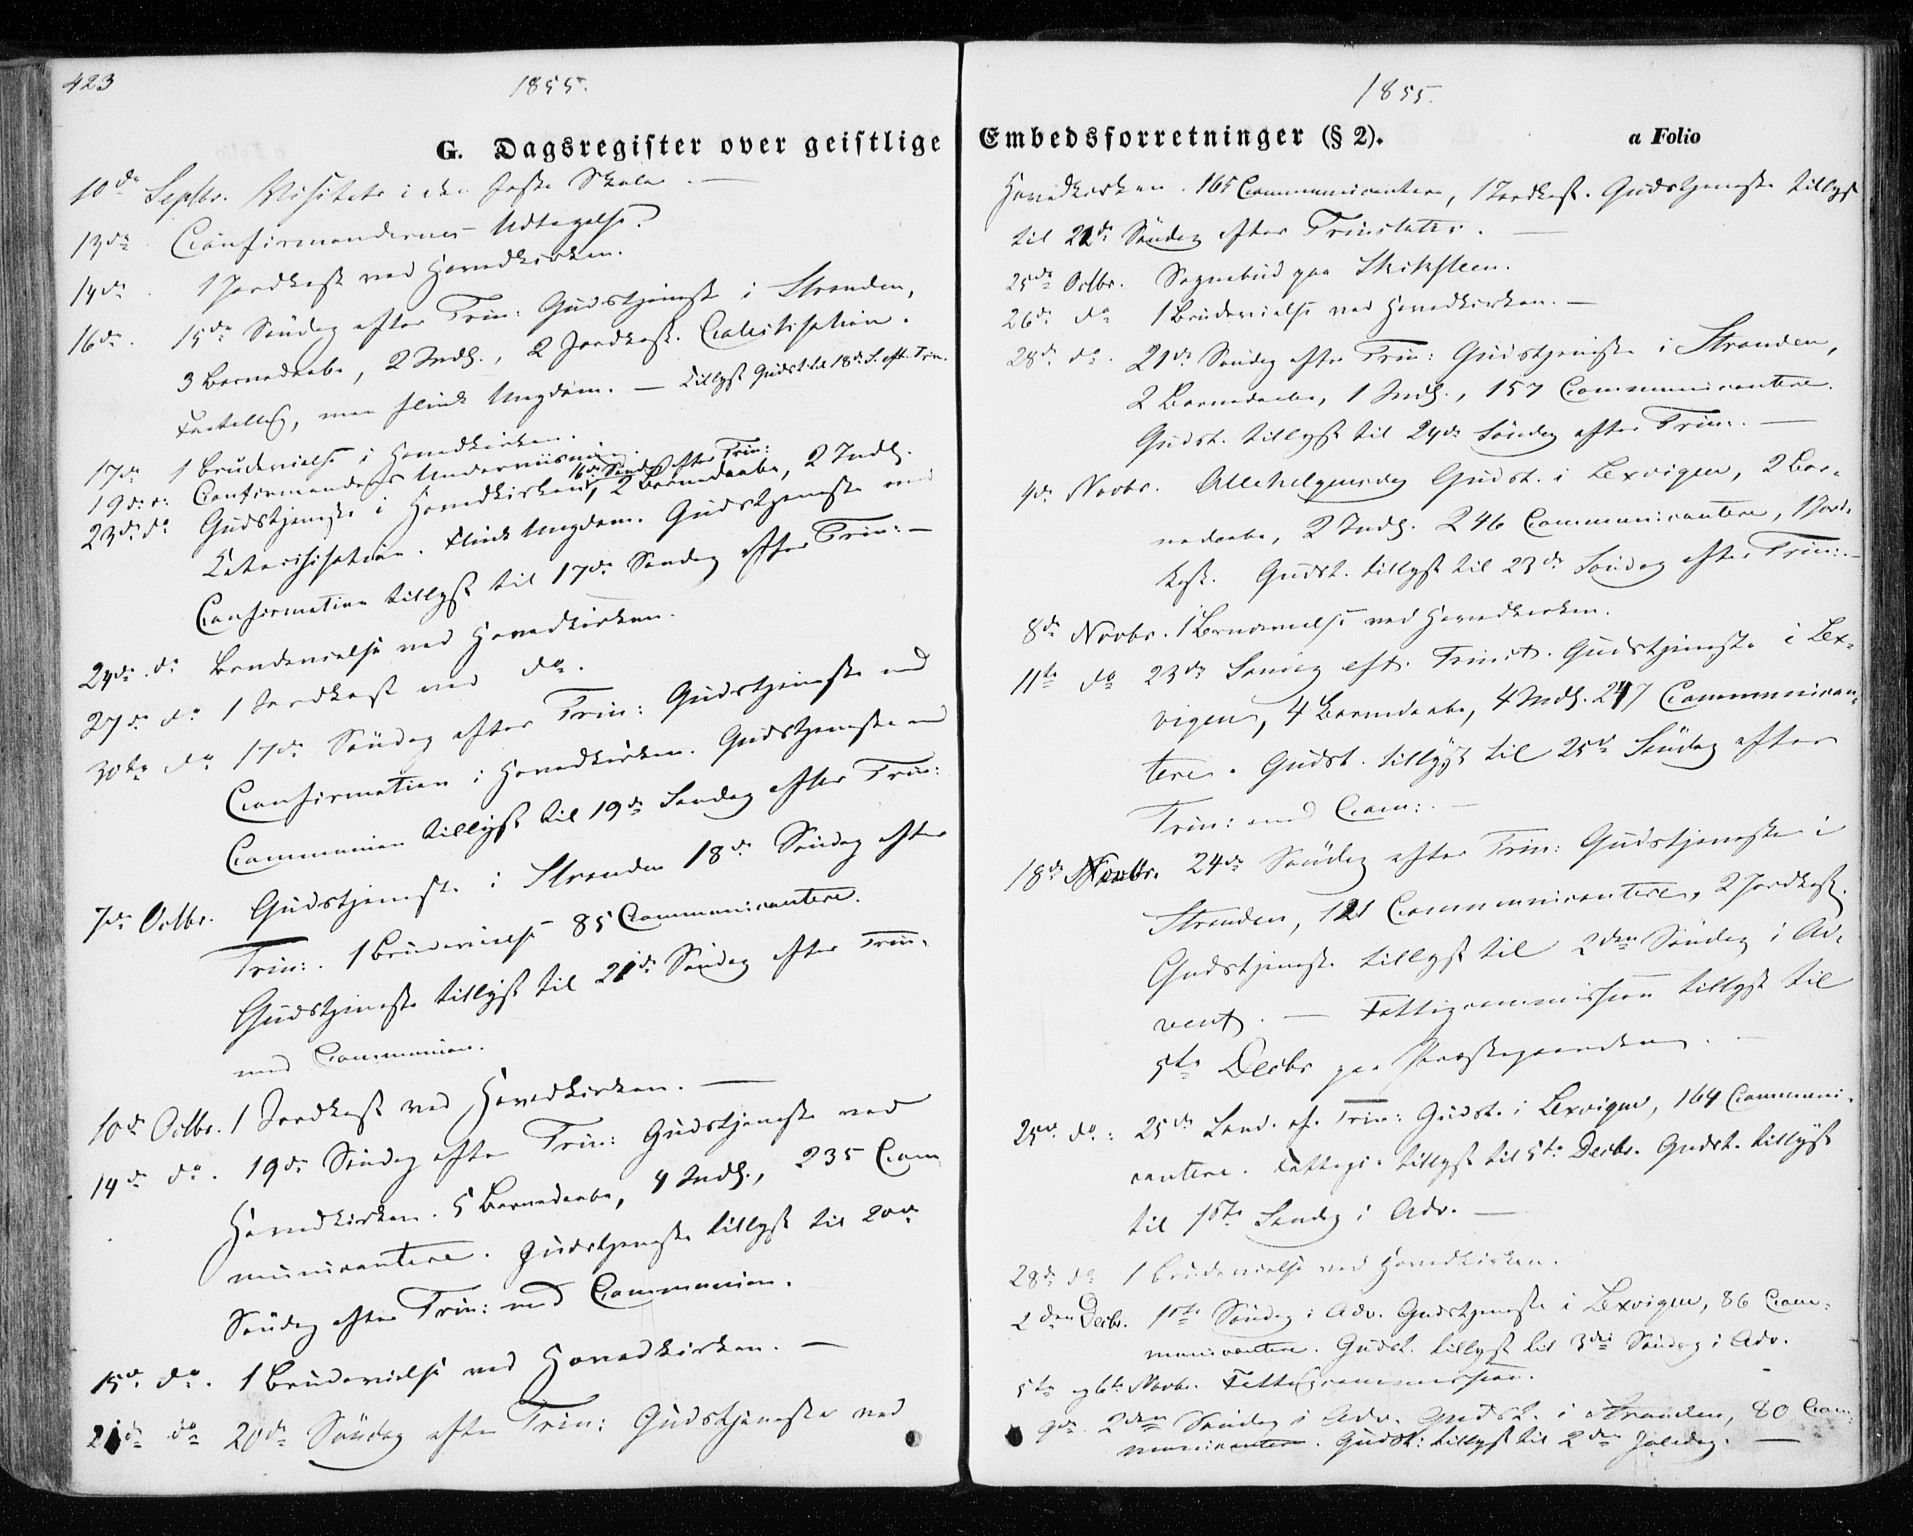 423
1855.
G. Dagsregister over geistlige
10de Septbr. Visitats i den faste Skole. —
13de Confirmandernes Udtagelse.
14de 1 Jordkast ved Hovedkirken.
16de. 15de Søndag efter Trin: Gudstjeneste i Stranden,
3 Barnedaabe, 2 Indl., 2 Jordkast. Catechisation.
men flink Ungdom. — Tillyst Gudst. til 18de S. eft. Trin.
17de 1 Brudevielse i Hovedkirken.
19de Confirmanders Underviisning.
16de Søndag efter Trin:
23de do Gudstjeneste i Hovedkirken, 2 Barnedaabe, 2 Indl.
Catechisation. Flink Ungdom. Gudstjeneste med
Confirmation tillyst til 17de Søndag efter Trin: —
24de do Brudevielse ved Hovedkirken.
27de do 1 Jordkast ved do.
30te do 17de Søndag efter Trin: Gudstjeneste med
Confirmation i Hovedkirken. Gudstjeneste med
Communion tillyst til 19de Søndag efter Trin:
7de Octbr. Gudstjeneste i Stranden 18de Søndag efter
Trin:. 1 Brudevielse 85 Communicantere.
Gudstjeneste tillyst til 21de Søndag efter Trin.
med Communion.
10de Octbr. 1 Jordkast ved Hovedkirken. —
14de do. 19de Søndag efter Trin: Gudstjeneste ved
Hovedkirken. 5 Barnedaabe, 4 Indl., 235 Com
municantere. Gudstjeneste tillyst til 20de
Søndag efter Trin: med Communion.
15de do. 1 Brudevielse ved Hovedkirken. —
21de do 20de Søndag efter Trin: Gudstjeneste ved
1855.
Embedsforretninger (§ 2).
a Folio
Hovedkirken. 165 Communicantere, 1 Jordkast. Gudstjeneste tillyst
til 22de Søndag efter Trinitatis. —
25de Octbr. Sognebud paa
26de do 1 Brudevielse ved Hovedkirken. —
28de do. 21de Søndag efter Trin: Gudstjeneste i Stranden,
2 Barnedaabe, 1 Indl., 157 Communicantere.
Gudst. tillyst til 24de Søndag efter Trin:. —
4de Novbr. Allehelgensdag Gudst. i Lexvigen, 2 Bar-
nedaabe, 2 Indl. 246 Communicantere, 1 Jord-
kast. Gudst. tillyst til 23de Søndag efter Trin:. —
8de Novbr. 1 Brudevielse ved Hovedkirken.
11te do 23de Søndag eft. Trinit. Gudstjeneste i Lex-
vigen, 4 Barnedaabe, 4 Indl. 247 Communican-
tere. Gudst. tillyst til 25de Søndag efter
Trin: med Com:. —
18de Novbr. 24de Søndag efter Trin: Gudstjeneste i
Stranden, 121 Communicantere, 2 Jordkast.
Gudstjeneste tillyst til 2den Søndag i Ad-
vent. — Fattigcommission tillyst til
5te Decbr paa Præstegaarden. —
25de do: 25de Sønd. ef. Trin: Gudst. i Lexvigen, 164 Communi-
cantere. tillyst til 5te Decbr. Gudst. tillyst
til 1ste Søndag i Adv. —
28de do 1 Brudevielse ved Hovedkirken.
2den Decbr. 1ste Søndag i Adv. Gudstjeneste i Lexvigen, 86 Com-
municantere. Gudst. tillyst til 3die Søndag i Adv.
5te og 6te Novbr. Fattigcommission.
9de. 2den Søndag i Adv. Gudst. i Stranden, 80 Com-
municantere. Gudst: tillyst til 2den Juledag. —